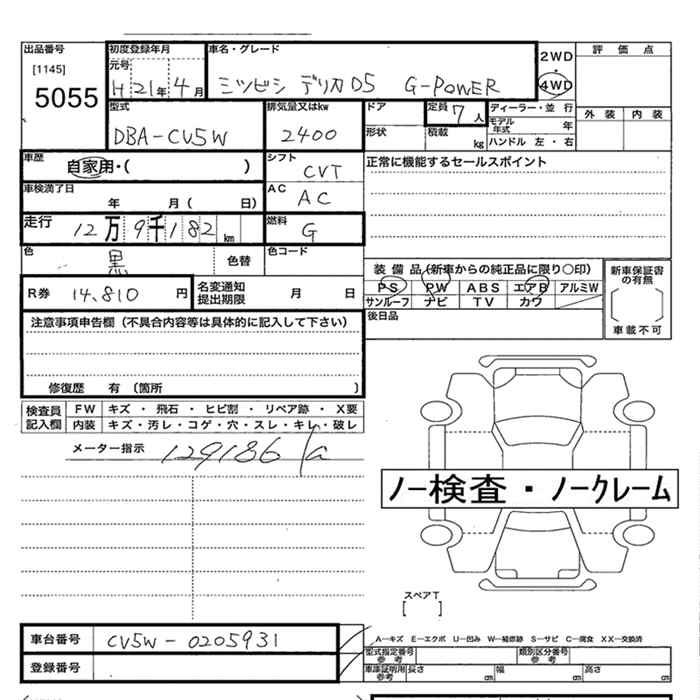 出品番号
[1145]
5055
初度登録年月
元号
H 21年 4月
車名・グレード
ミツビシ デリカD5 G-POWER
2WD
4WD
評価点
外装 内装
型式
DBA-CV5W
排気量又はkw
2400
ドア
形状
定員 7人
積載 kg
ディーラー・並行
モデル年式 年
ハンドル 左・右
車歴
自家用・( )
シフト
CVT
正常に機能するセールスポイント
車検満了日
年 月( 日)
AC
AC
走行
12万9千182km
燃料
G
色
黒
色替
色コード
装備品(新車からの純正品に限り○印)
PS PW ABS エアB アルミW
サンルーフ ナビ TV カワ
新車保証書の有無
[ ]
車載不可
R券 14,810円
名変通知提出期限 月 日
後日品
注意事項申告欄(不具合内容等は具体的に記入して下さい)
修復歴 有 (箇所 )
検査員記入欄
FW キズ・飛石・ヒビ割・リペア跡・X要
内装 キズ・汚レ・コゲ・穴・スレ・キレ・破レ
メーター指示 129186
ノー検査・ノークレーム
スペアT
[ ]
車台番号 CV5W-0205931
登録番号
A-キズ E-エクボ U-凹み W-補修跡 S-サビ C-腐食 XX-交換済
型式指定番号 参考
類別区分番号 参考
車庫証明用 参考 長さ cm 幅 cm 高さ cm